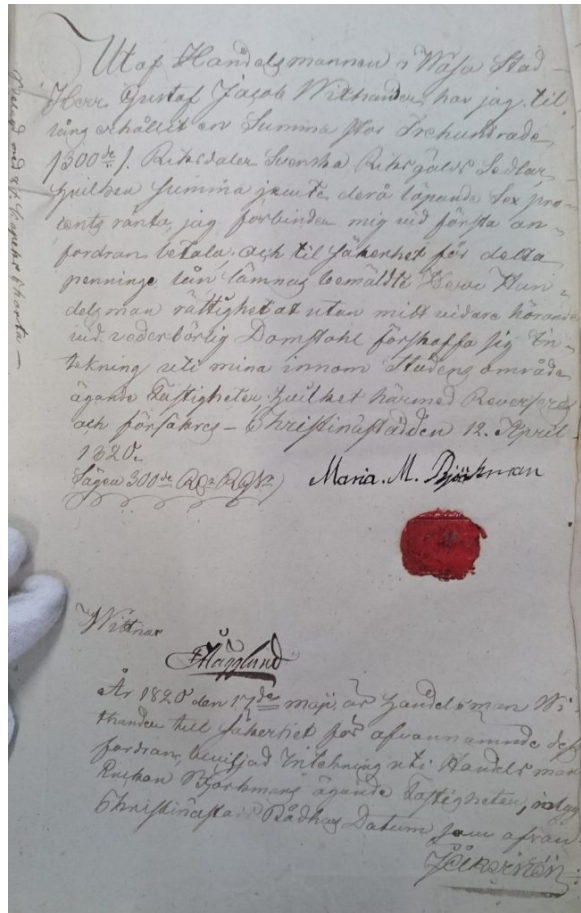 Utaf Handelsmannen i Wasa Stad
Herr Gustaf Jacob Withander, har jag til
lång erhållit en Summa stor Trehundrade
/300de/. Riksdaler Svenska Riksgälds Sedlar,
hvilken Summa jemte derå löpande Sex pro-
cents ränta, jag förbinder mig vid första an-
fordran betala. och til säkerhet för detta
penninge lån lämnas bemäldte Herr Han-
delsman rättighet at utan mitt vidare hörande
vid vederbörlig Domstohl förskaffa sig In-
tekning uti mina innom Stadens område
ägande Fastigheter hvilket härmed Reverseras
och försäkras – Christinæstadden 12. April
1820.
Säger 300de
Maria. M. Björkman
Wittnar
Hägglund
År 1820 den 17de maji, är Handelsman Wi-
thander till säkerhet för afvannamnde dess
fordran, beviljad Intekning uti Handelsman
Enckan Björkmans ägande Fastigheter, 
Christinæstads Rådhus Datum som ofvan